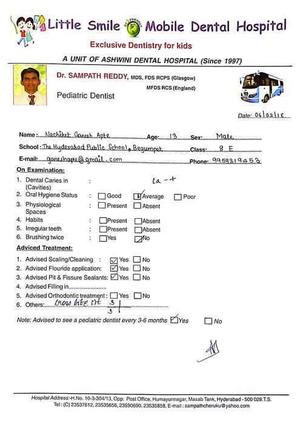 Little Smile Mobile Dental Hospital
Exclusive Dentistry for kids
A UNIT OF ASHWINI DENTAL HOSPITAL (Since 1997)
Dr. SAMPATH REDDY, MDS, FDS RCPS (Glasgow)
MFDS RCS (England)
Pediatric Dentist
Date: 06/02/15
Name: Nachiket Ganesh Apte Age: 13 Sex: Male
School: The Hyderabad Public School, Begumpet Class: 8 E
E-mail: @gmail.com Phone:
On Examination:
1. Dental Caries in
(Cavities)
2. Oral Hygiene Status : Good Average Poor
3. Physiological : Present Absent
Spaces
4. Habits : Present Absent
5. Irregular teeth : Present Absent
6. Brushing twice : Yes No
Adviced Treatment:
1. Advised Scaling/Cleaning : Yes No
2. Advised Flouride application: Yes No
3. Advised Pit & Fissure Sealants: Yes No
4. Advised Filling in
5. Advised Orthodontic treatment : Yes No
6. Others: 3
3
Note: Advised to see a pediatric dentist every 3-6 months Yes No
Hospital Address -H.No. 10-3-304/13, Opp. Post Office, Humayunnagar, Masab Tank, Hyderabad - 500 028 T.S.
Tel: (C) 23537612, 23535656, 23530690, 23535858, E-mail : sampathcheruku@yahoo.com